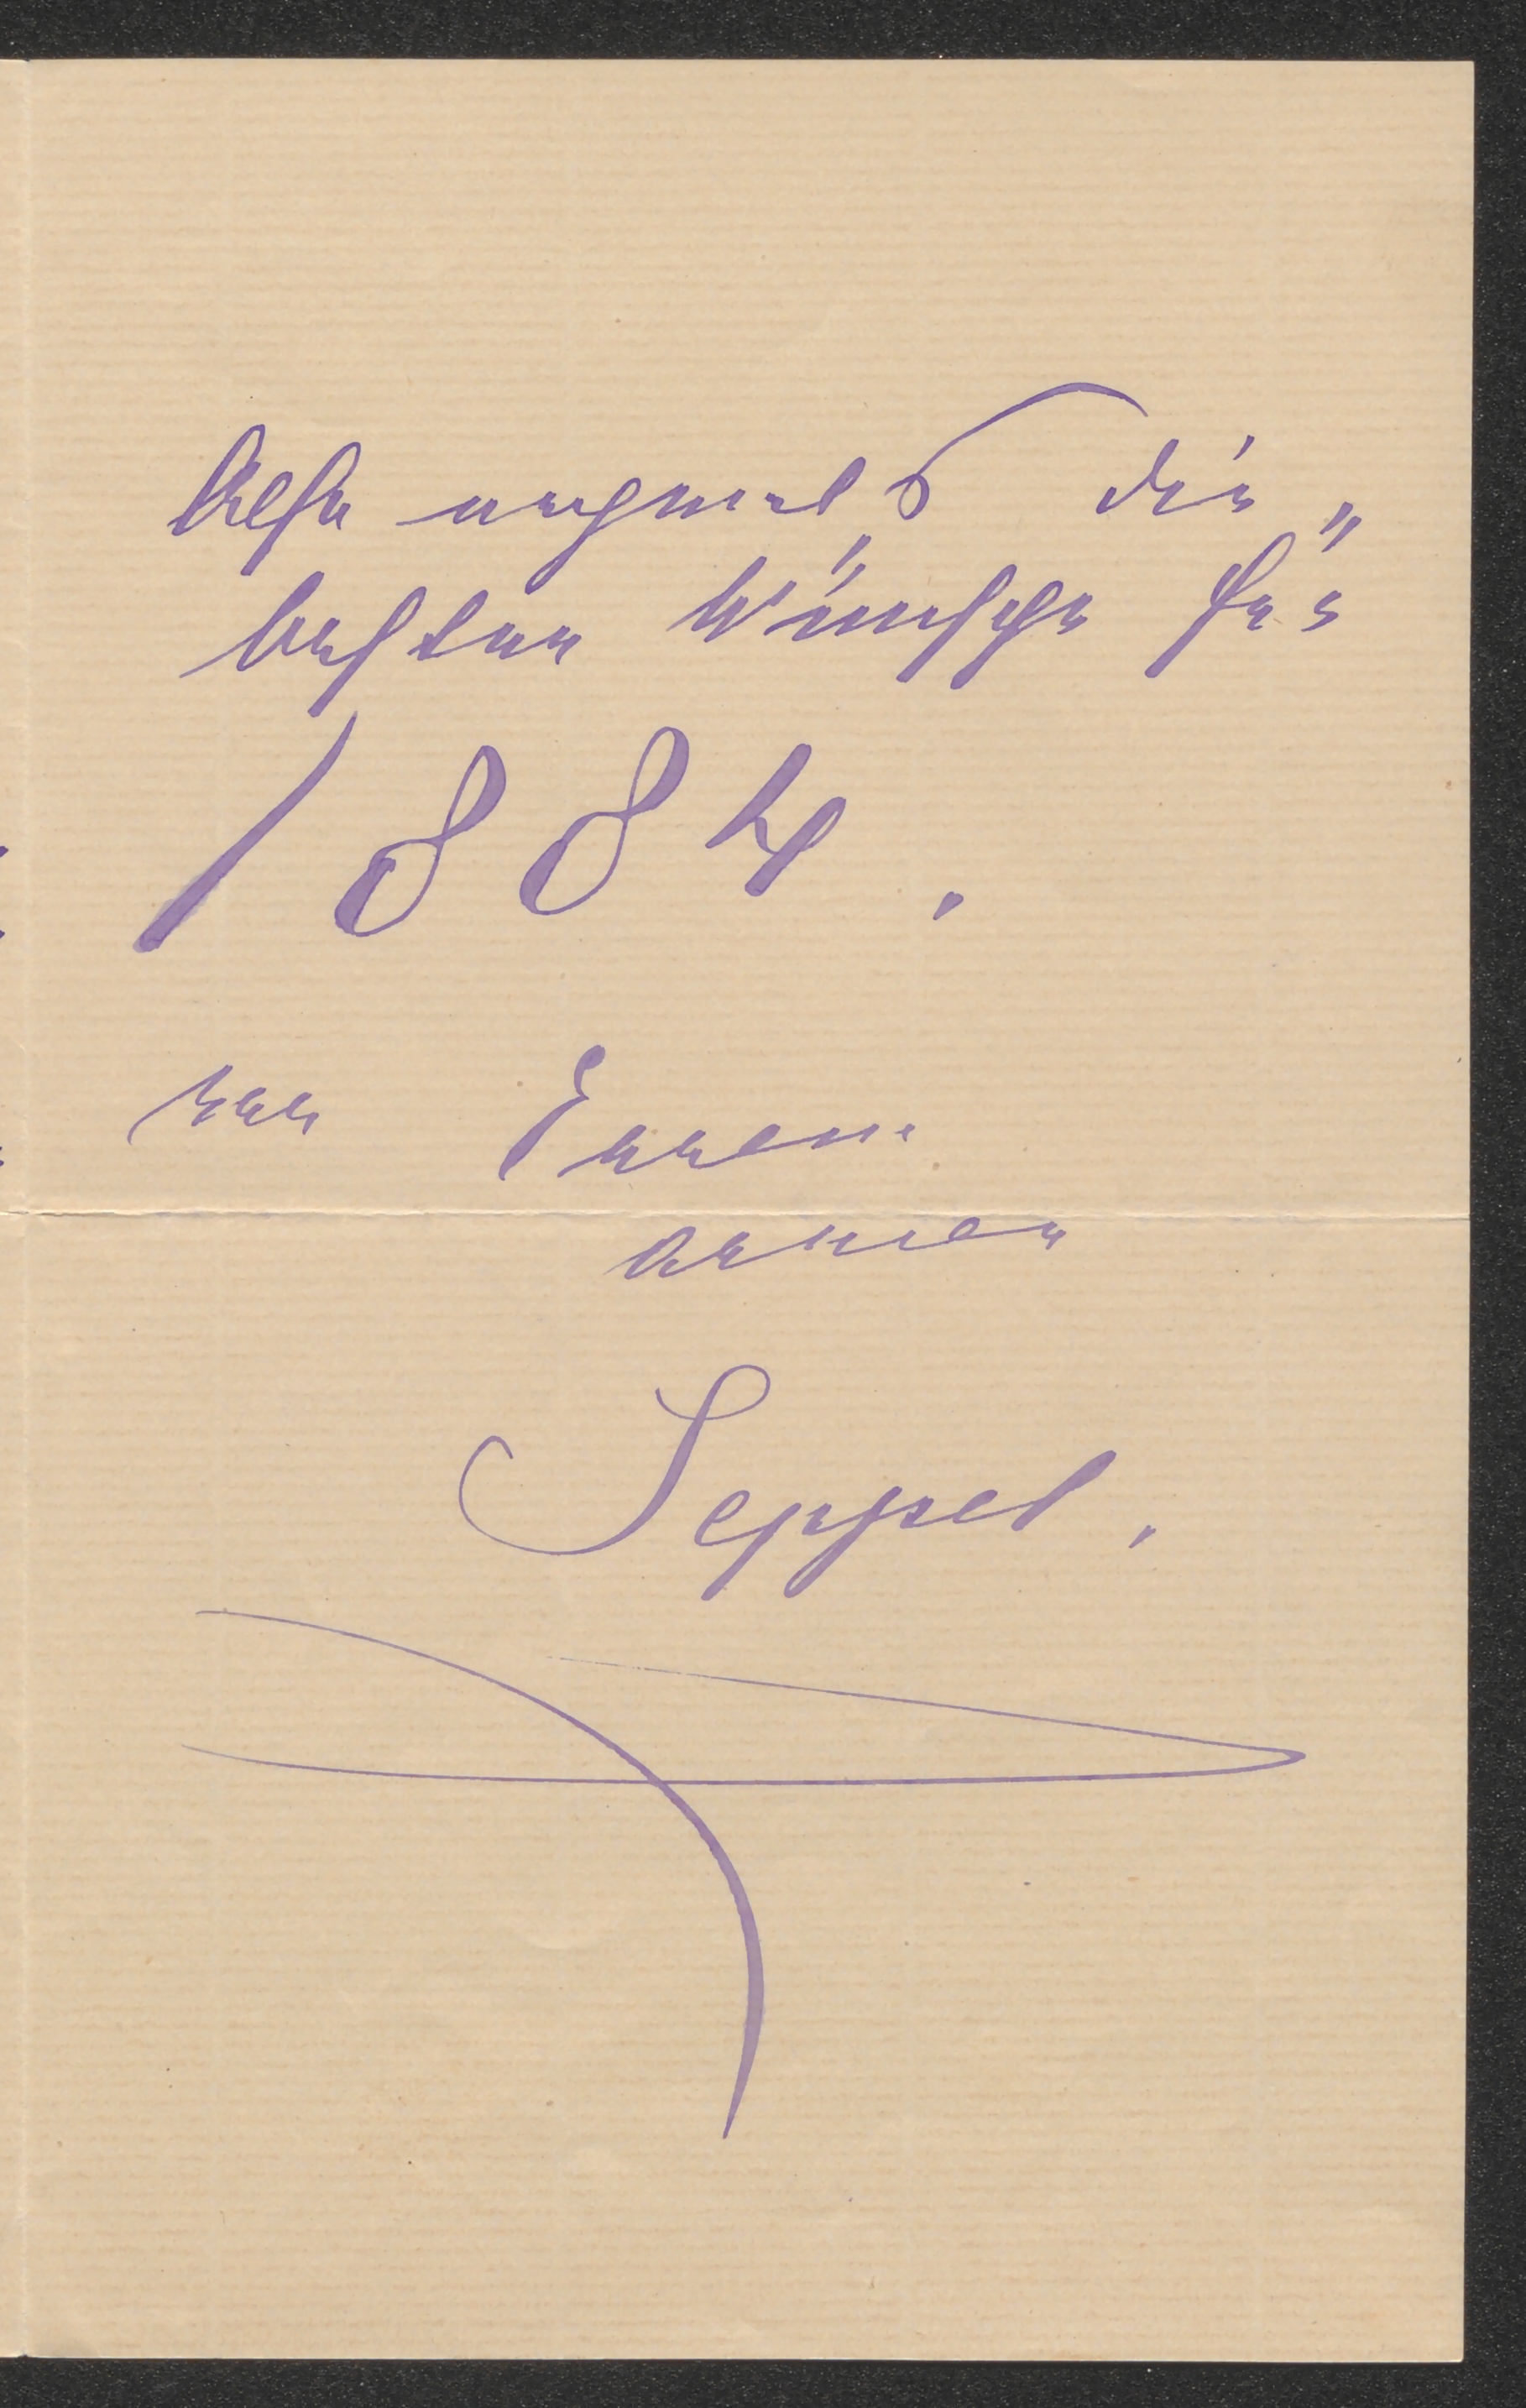 Also nochmals die
besten Wünsche für
1884.
von Ihrem
armen
Seppel.